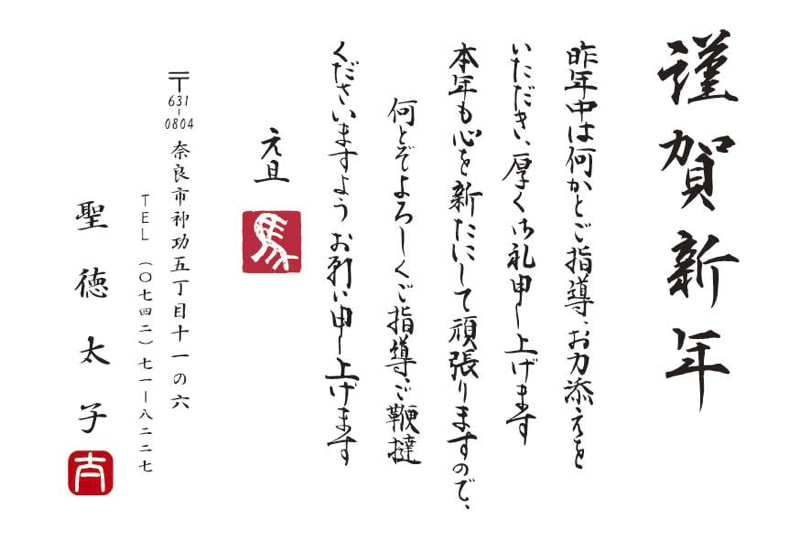 謹賀新年
昨年中は何かとご指導、お力添えを
いただき、厚く御礼申し上げます
本年も心を新たにして頑張りますので、
何とぞよろしくご指導ご鞭撻
くださいますようお願い申し上げます
元旦
馬
〒631-0804 奈良市神功五丁目十一の六
TEL (〇七四二)七一ー八二二七
聖徳太子